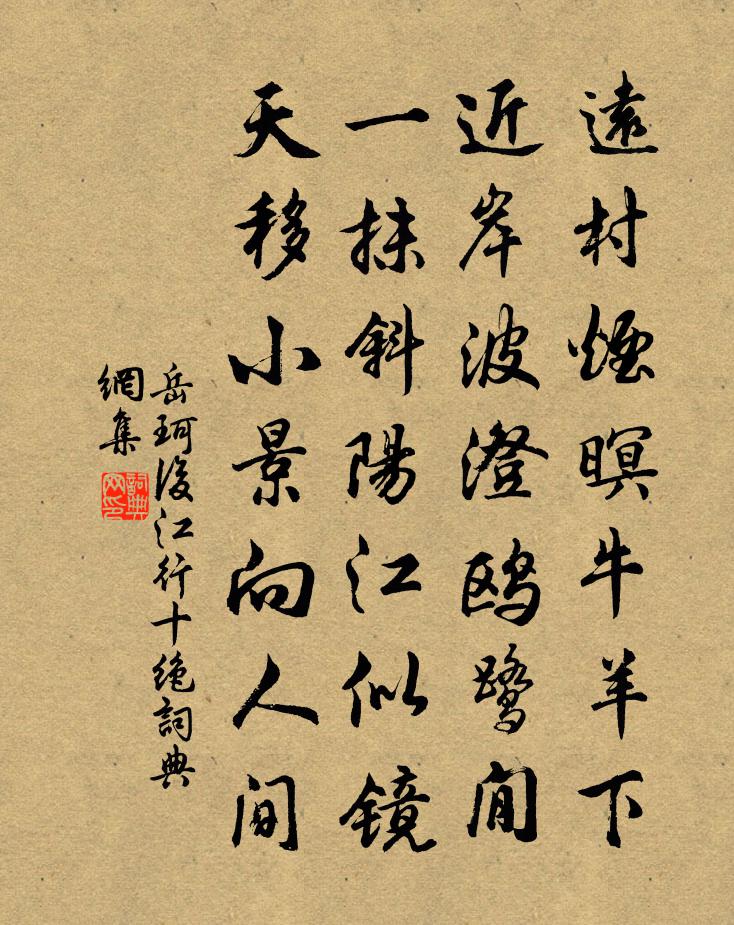 遠村煙暝牛羊下
近岸波澄鷗鷺閒
一抹斜陽江似鏡
天移小景向人間
岳珂後江行十絶詞典
網集
詞典
网印